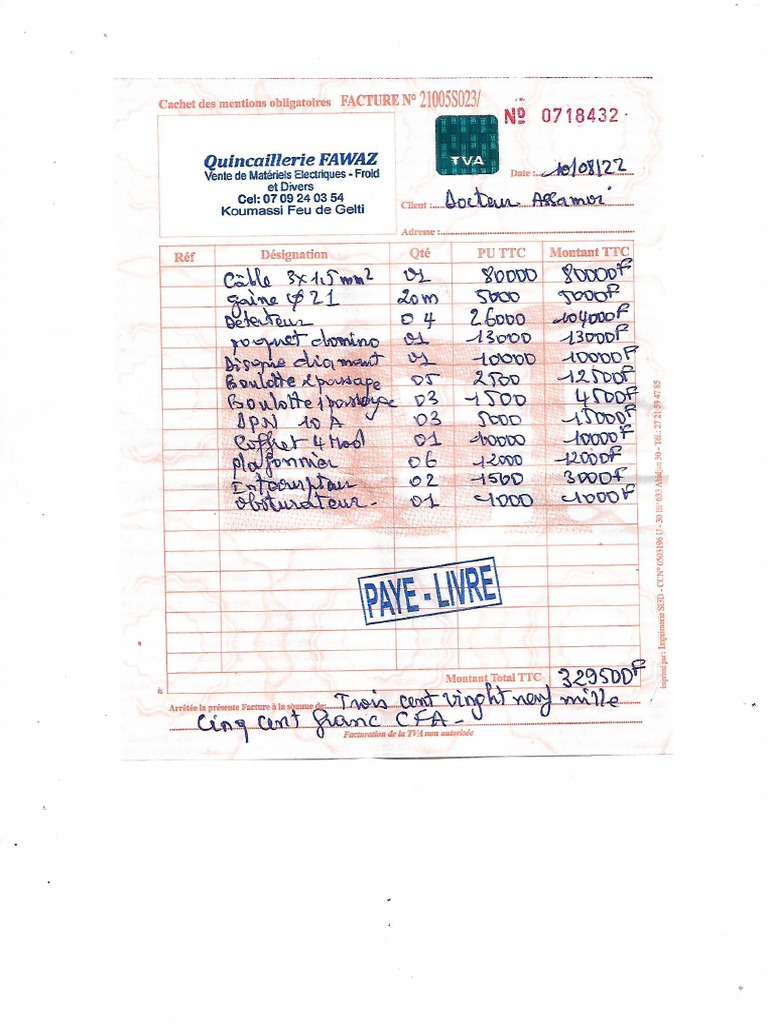 Cachet des mentions obligatoires FACTURE N° 21005S023/
N° 0718432
Quincaillerie FAWAZ
Vente de Matériels Electriques - Froid
et Divers
Cel: 07 09 24 03 54
Koumassi Feu de Gelti
TVA
Date : 10/08/22
Client : Docteur Assamoi
Adresse :
Réf Désignation Qté PU TTC Montant TTC
Câble 3x1,5mm² 01 80000 80000F
gaine φ21 20m 5000 5000F
Détecteur 04 26000 104000F
paquet domino 01 13000 13000F
Disque diamant 01 10000 10000F
Boulotte 2 passage 05 2500 12500F
Boulotte 1 passage 03 1500 4500F
DPN 10 A 03 5000 15000F
Coffret 4 Mod 01 10000 10000F
plafonnier 06 12000 12000F
Interrupteur 02 1500 3000F
obturateur - 01 1000 1000F
PAYE - LIVRE
Montant Total TTC 329500F
Arrêtée la présente Facture à la somme de: Trois cent vinght neuf mille
Cinq cent franc CFA -
Facturation de la TVA non autorisée
Imprimé par : Imprimerie SI3D - CCN° 0503196 U - 30 BP 633 Abidjan 30 - Tél.: 27 21 59 47 85